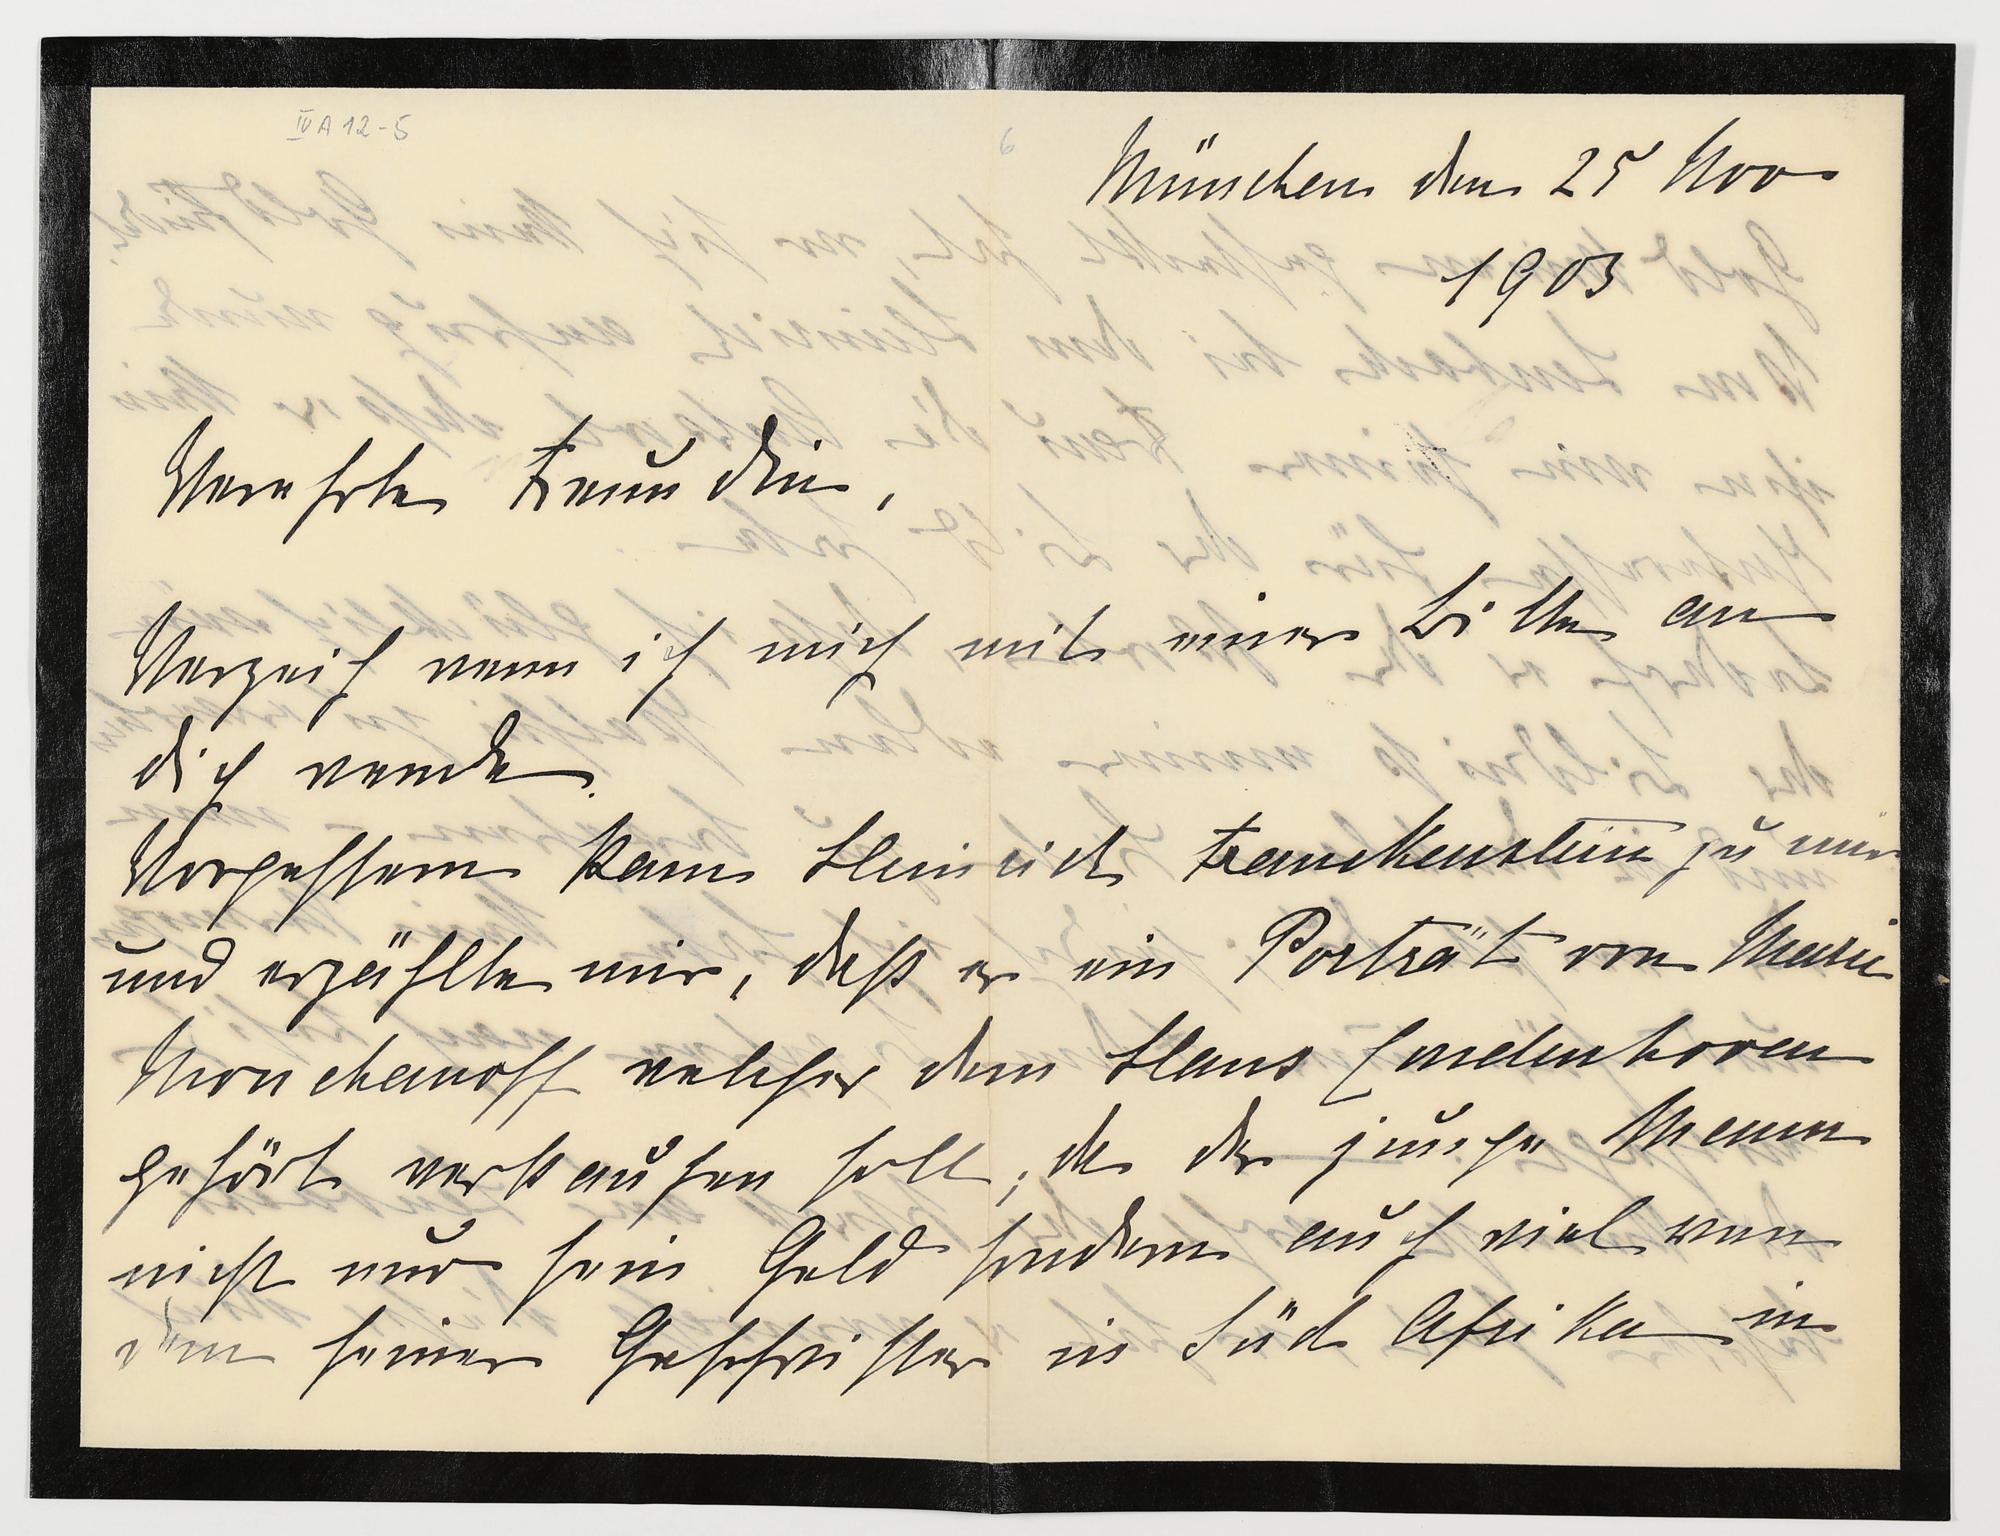 IV A 12-5
6
München den 25 Nov
1903
Verehrte Freundin,
Verzeih wenn ich mich mit einer Bitte an
dich wende.
Vorgestern kam Heinrich Franckenstein zu mir
und erzählte mir, daß er ein Porträt von Marie
Mouchanoff welcher dem Hans Coudenhoven
gehört verkaufen soll, da der junge Mann
nicht nur sein Geld sondern auch viel von
dem seiner Geschwister in Süd Afrika in